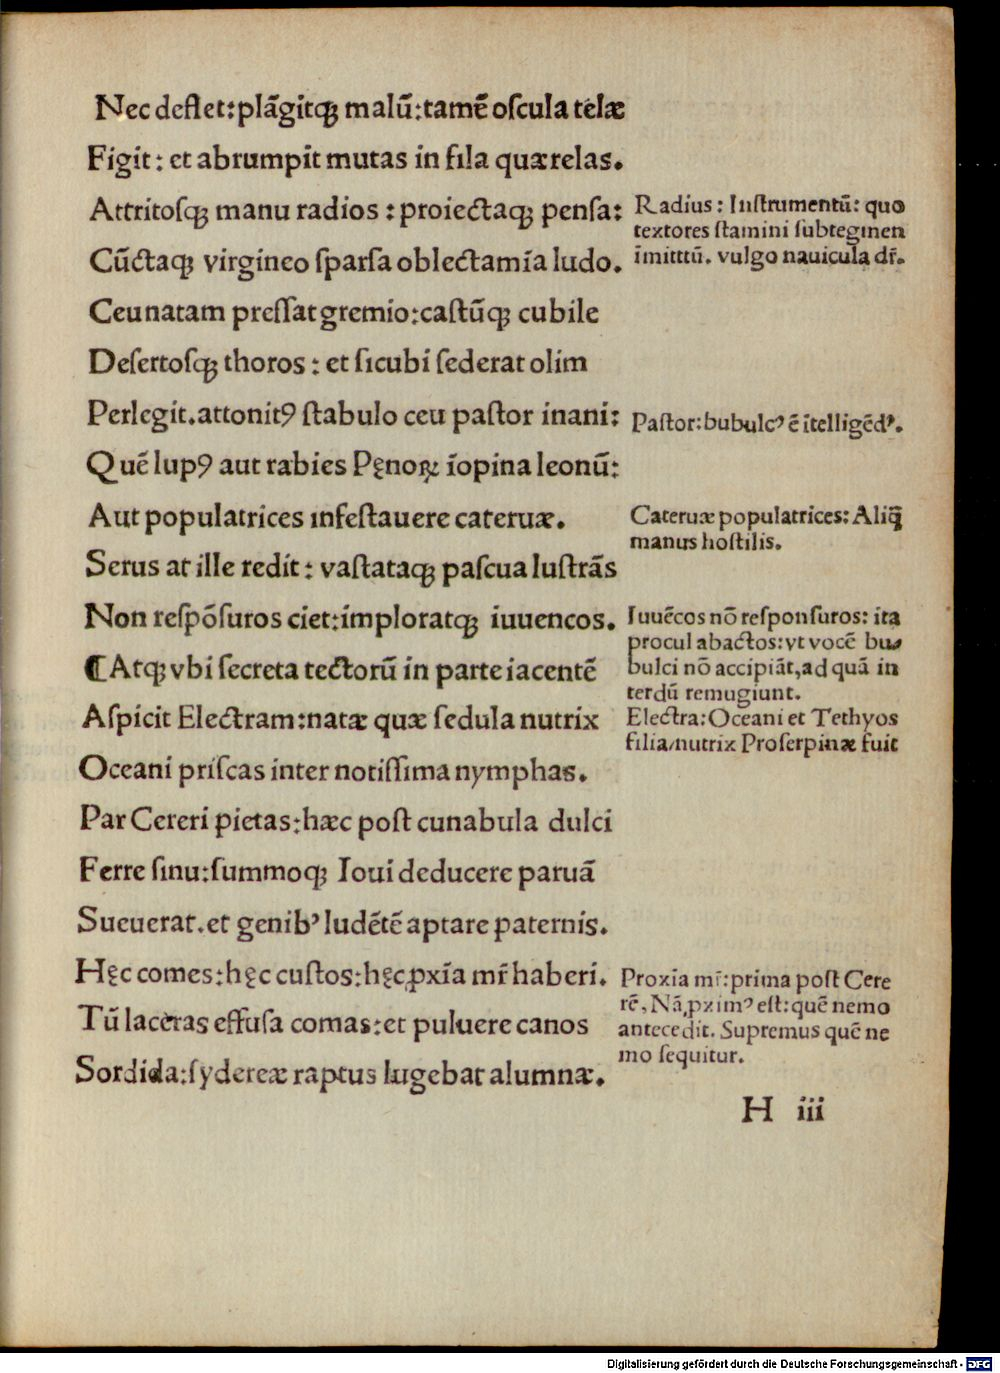 Nec deflet: plāgitqꝫ malū: tamē oſcula telæ
Figit: et abrumpit mutas in fila quærelas.
Attritoſqꝫ manu radios: proiectaqꝫ penſa:
Cūctaqꝫ virgineo ſparſa oblectamīa ludo.
Ceu natam preſſat gremio: caſtūqꝫ cubile
Deſertoſqꝫ thoros: et ſicubi ſederat olim
Perlegit. attonitꝰ ſtabulo ceu paſtor inani:
Quē lupꝰ aut rabies Pęnoꝝ īopina leonū:
Aut populatrices infeſtauere cateruæ.
Serus at ille redit: vaſtataqꝫ paſcua luſtrās
Non reſpōſuros ciet: imploratqꝫ iuuencos.
¶Atqꝫ vbi ſecreta tectorū in parte iacentē
Aſpicit Electram: natæ quæ ſedula nutrix
Oceani priſcas inter notiſſima nymphas.
Par Cereri pietas: hæc poſt cunabula dulci
Ferre ſinu: ſummoqꝫ Ioui deducere paruā
Sueuerat. et genibꝰ ludētē aptare paternis.
Hęc comes: hęc cuſtos: hęc ꝓxīa mr̄ haberi.
Tū laceras effuſa comas: et puluere canos
Sordida: ſydereæ raptus lugebat alumnæ.
Radius: Inſtrumentū: quo
textores ſtamini ſubtegmen
īmitttū. vulgo nauicula dr̄.
Paſtor: bubulcꝰ ē ītelligēdꝰ.
Cateruæ populatrices: Aliq̄
manus hoſtilis.
Iuuēcos nō reſponſuros: ita
procul abactos: vt vocē bu
bulci nō accipiāt, ad quā in
terdū remugiunt.
Electra: Oceani et Tethyos
filia/nutrix Proſerpinæ fuit
Proxīa mr̄: prima poſt Cere
rē, Nā ꝓximꝰ eſt: quē nemo
antecedit. Supremus quē ne
mo ſequitur.
H iii
Digitalisierung gefördert durch die Deutsche Forschungsgemeinschaft - DFG